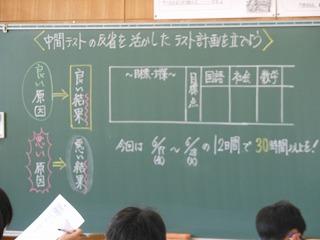 〈中間テストの反省を活かしたテスト計画を立てよう〉
良い原因⇒良い結果
悪い原因⇒悪い結果
～目標・計画～ 目標点 国語 社会 数学
今回は 6/17(火)～6/28(土)の12日間で30時間以上を!